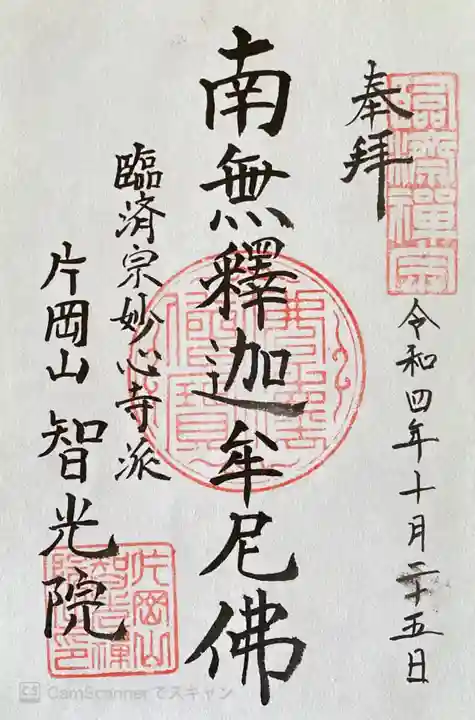 奉拝
臨濟禪宗
令和四年十月二十五日
南無釋迦牟尼佛
佛法僧寶
臨済宗妙心寺派
片岡山 智光院
CS CamScanner でスキャン